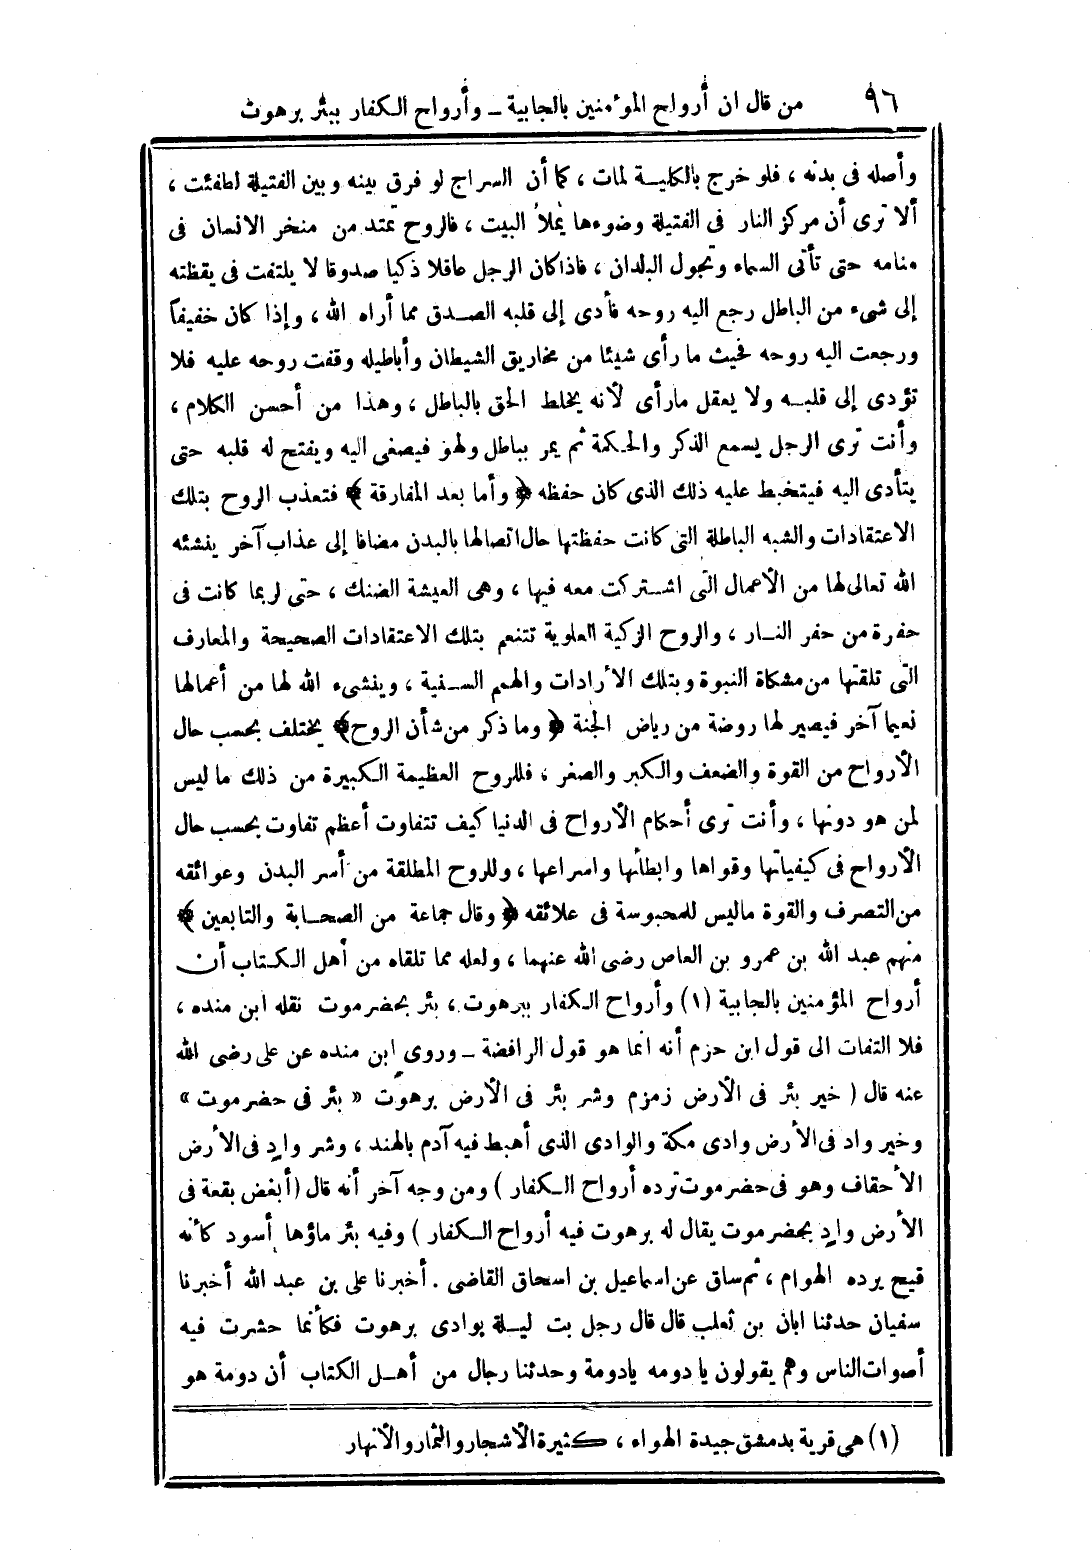 ٩٦ من قال ان أرواح المؤمنين بالجابية ـ وأرواح الكفار ببئر برهوت
وأصله فى بدنه ، فلو خرج بالكلية لمات ، كما أن السراج لو فرق بينه وبين الفتيلة لطفئت ،
ألا ترى أن مركز النار فى الفتيلة وضوءها يملأ البيت ، فالروح تمتد من منخر الانسان فى
منامه حتى تأتى السماء وتجول البلدان ، فاذا كان الرجل عاقلا ذكيا صدوقا لا يلتفت فى يقظته
إلى شىء من الباطل رجع اليه روحه فأدى إلى قلبه الصدق مما أراه الله ، وإذا كان خفيفاً
ورجعت اليه روحه فحيث ما رأى شيئا من مخاريق الشيطان وأباطيله وقفت روحه عليه فلا
تؤدى إلى قلبه ولا يعقل مارأى لأنه يخلط الحق بالباطل ، وهذا من أحسن الكلام ،
وأنت ترى الرجل يسمع الذكر والحكمة ثم يمر بباطل ولهو فيصغى اليه ويفتح له قلبه حتى
يتأدى اليه فيتخبط عليه ذلك الذى كان حفظه ﴿ وأما بعد المفارقة ﴾ فتعذب الروح بتلك
الاعتقادات والشبه الباطلة التى كانت حفظتها حال اتصالها بالبدن مضافا إلى عذاب آخر ينشئه
الله تعالى لها من الأعمال التى اشتركت معه فيها ، وهى العيشة الضنك ، حتى لربما كانت فى
حفرة من حفر النار ، والروح الزكية العلوية تتنعم بتلك الاعتقادات الصحيحة والمعارف
التى تلقتها من مشكاة النبوة وبتلك الأرادات والهمم السنية ، وينشىء الله لها من أعمالها
نعيما آخر فيصير لها روضة من رياض الجنة ﴿ وما ذكر من شأن الروح ﴾ يختلف بحسب حال
الأرواح من القوة والضعف والكبر والصغر ، فللروح العظيمة الكبيرة من ذلك ما ليس
لمن هو دونها ، وأنت ترى أحكام الأرواح فى الدنيا كيف تتفاوت أعظم تفاوت بحسب حال
الأرواح فى كيفياتها وقواها وابطائها واسراعها ، وللروح المطلقة من أسر البدن وعوائقه
من التصرف والقوة ماليس للمحبوسة فى علائقه ﴿ وقال جماعة من الصحابة والتابعين ﴾
منهم عبد الله بن عمرو بن العاص رضى الله عنهما ، ولعله مما تلقاه من أهل الكتاب أن
أرواح المؤمنين بالجابية (١) وأرواح الكفار ببرهوت ، بئر بحضرموت نقله ابن منده ،
فلا التفات الى قول ابن حزم أنه انما هو قول الرافضة ـ وروى ابن منده عن على رضى الله
عنه قال ( خير بئر فى الأرض زمزم وشر بئر فى الأرض برهوت « بئر فى حضرموت »
وخير واد فى الأرض وادى مكة والوادى الذى أهبط فيه آدم بالهند ، وشر وادٍ فى الأرض
الأحقاف وهو فى حضرموت ترده أرواح الكفار ) ومن وجه آخر أنه قال ( أبغض بقعة فى
الأرض وادٍ بحضرموت يقال له برهوت فيه أرواح الكفار ) وفيه بئر ماؤها أسود كأنه
قيح يرده الهوام ، ثم ساق عن اسماعيل بن اسحاق القاضى . أخبرنا على بن عبد الله أخبرنا
سفيان حدثنا ابان بن ثعلب قال قال رجل بت ليلة بوادى برهوت فكأنما حشرت فيه
أصوات الناس وهم يقولون يا دومه يادومة وحدثنا رجال من أهل الكتاب أن دومة هو
(١) هى قرية بدمشق جيدة الهواء ، كثيرة الأشجار والثمار والأنهار